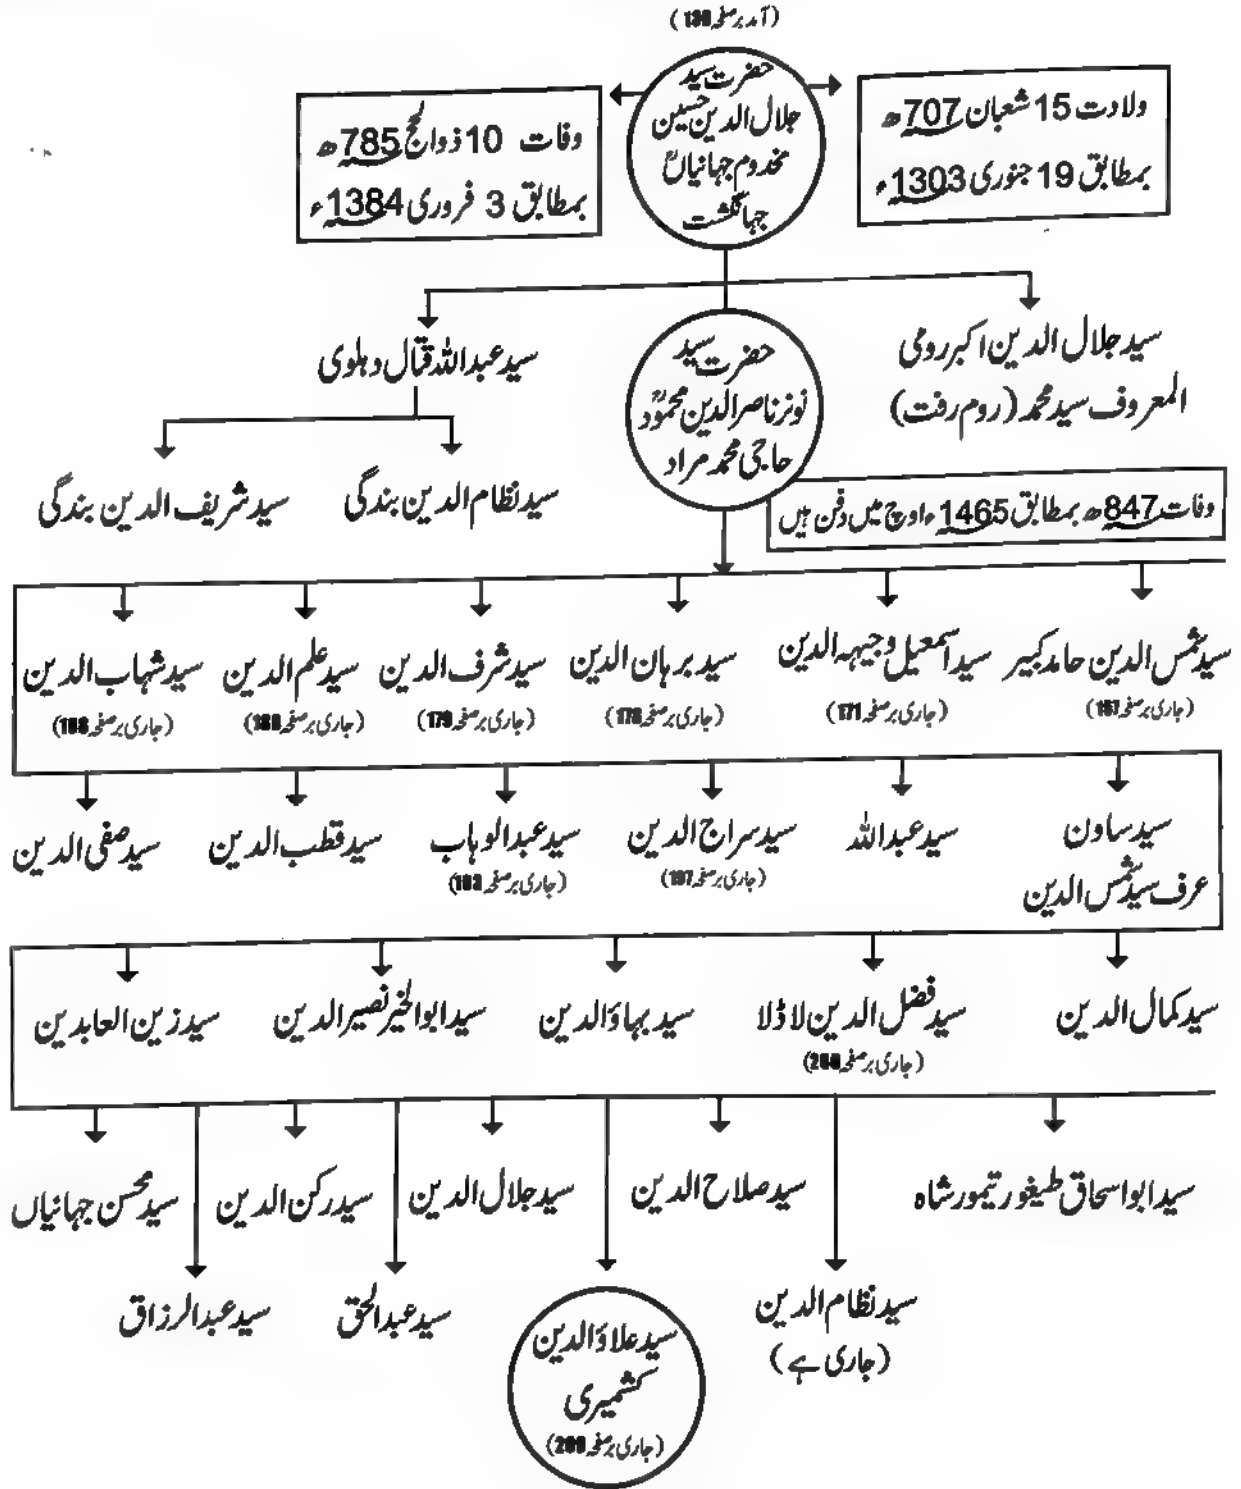 (آمد برصفحہ 130)
حضرت سید
جلال الدین حسین
مخدوم جہانیاںؒ
جہانگشت
ولادت 15 شعبان 707ھ
بمطابق 19 جنوری 1303ء
وفات 10 ذوالج 785ھ
بمطابق 3 فروری 1384ء
سید جلال الدین اکبر رومی
المعروف سید محمد (روم رفت)
حضرت سید
نونرناصرالدین محمودؒ
حاجی محمد مراد
سید عبداللہ قتال دہلوی
وفات 847ھ بمطابق 1465ء اوچ میں دفن ہیں
سید نظام الدین بندگی
سید شریف الدین بندگی
سید شمس الدین حامد کبیر
(جاری برصفحہ 157)
سید اسمعیل وجیہہ الدین
(جاری برصفحہ 171)
سید برہان الدین
(جاری برصفحہ 178)
سید شرف الدین
(جاری برصفحہ 179)
سید علم الدین
(جاری برصفحہ)
سید شہاب الدین
(جاری برصفحہ)
سید ساون
عرف سید شمس الدین
سید عبداللہ
سید سراج الدین
(جاری برصفحہ 197)
سید عبدالوہاب
(جاری برصفحہ)
سید قطب الدین
سید صفی الدین
سید کمال الدین
سید فضل الدین لاڈلا
(جاری برصفحہ)
سید بہاؤالدین
سید ابوالخیر نصیر الدین
سید زین العابدین
سید ابو اسحاق طیغور تیمور شاہ
سید صلاح الدین
سید جلال الدین
سید رکن الدین
سید محسن جہانیاں
سید نظام الدین
(جاری ہے)
سید علاؤالدین
کشمیری
(جاری برصفحہ)
سید عبدالحق
سید عبدالرزاق